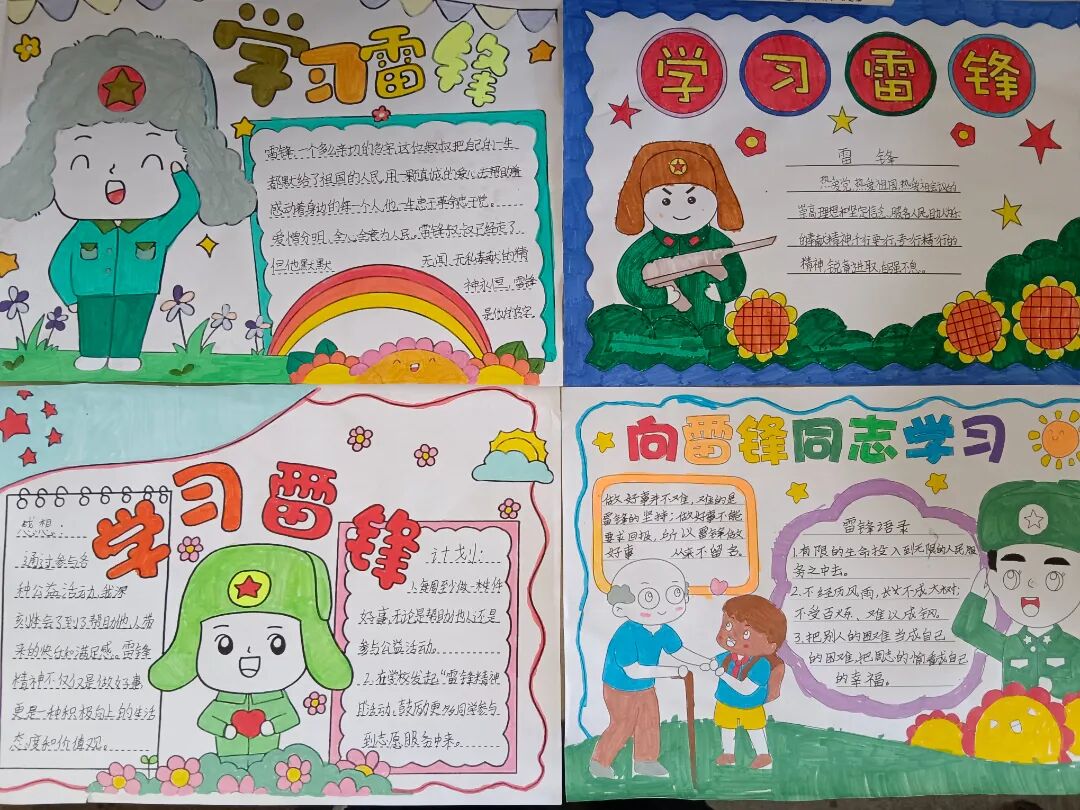 学习雷锋
雷锋,一个多么亲切的名字,这位叔叔把自己的一生
都默给了祖国的人民,用一颗真诚的爱心去帮助着
感动着身边的每一个人,他一生忠于革命忠于党。
爱憎分明,全心全意为人民。雷锋叔叔已经走了
但他默默
无闻,无私奉献的精
神永恒,雷锋
是他的名字。
学习雷锋
雷锋
热爱党,热爱祖国,热爱社会主义的
崇高理想和坚定信念,服务人民,助人为乐
的奉献精神,干一行爱一行,专一行精一行的
精神,锐意进取,自强不息。
学习雷锋
感想:
通过参与各
种公益活动,我深
刻体会了到了帮助他人带
来的快乐和满足感。雷锋
精神不仅仅是做好事,
更是一种积极向上的生活
态度和价值观。
计划:
1.每周至少做一件
好事,无论是帮助他人还是
参与公益活动。
2.在学校发起“雷锋精神
活动,鼓励更多同学参与
到志愿服务中来。
向雷锋同志学习
做好事并不难,难的是
雷锋的坚持;做好事不能
要求回报,所以雷锋做
好事 从来不留名。
雷锋语录
1.有限的生命投入到无限的人民服
务之中去。
2.不经历风雨,长不成大树;
不受百炼,难以成钢。
3.把别人的困难当成自己
的困难,把同志的愉快看成自己
的幸福。